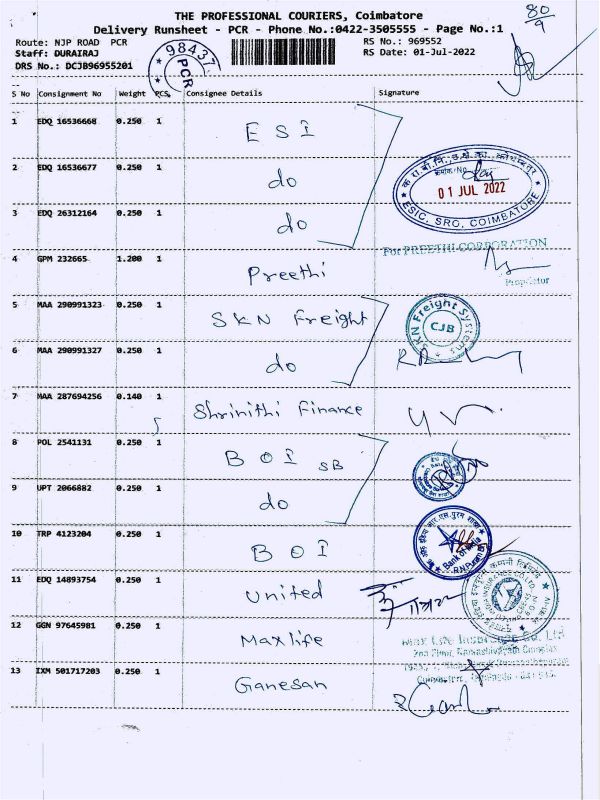 THE PROFESSIONAL COURIERS, Coimbatore
Delivery Runsheet - PCR - Phone No.:0422-3505555 - Page No.:1
80
9
Route: NJP ROAD PCR RS No.: 969552
Staff: DURAIRAJ RS Date: 01-Jul-2022
DRS No.: DCJB96955201
98437
PCR
S No Consignment No Weight PCS Consignee Details Signature
1 EDQ 16536668 0.250 1 ESI
2 EDQ 16536677 0.250 1 do
3 EDQ 26312164 0.250 1 do
01 JUL 2022
ESIC, SRO, COIMBATORE
4 GPM 232665 1.200 1 Preethi
For PREETHI CORPORATION
Proprietor
5 MAA 290991323 0.250 1 SKN Freight
SKN Freight Systems
CJB
6 MAA 290991327 0.250 1 do
7 MAA 287694256 0.140 1 Shrinithi Finance
8 POL 2541131 0.250 1 BOI SB
9 UPT 2066882 0.250 1 do
10 TRP 4123204 0.250 1 BOI
Bank of India
R.S. Puram Br.
11 EDQ 14893754 0.250 1 United
12 GGN 97645981 0.250 1 Maxlife
Max Life Insurance Co. Ltd
13 IXM 501717203 0.250 1 Ganesan